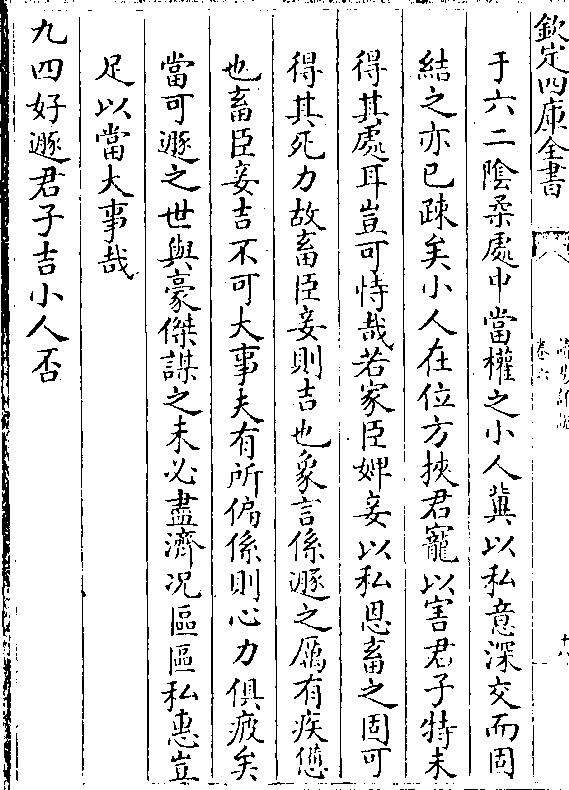 欽定四庫全書
卷六
十八
于六二陰柔處中當權之小人冀以私意深交而固
結之亦已疎矣小人在位方挾君寵以害君子特未
得其處耳豈可恃哉若家臣婢妾以私恩畜之固可
得其死力故畜臣妾則吉也象言係遯之厲有疾憊
也畜臣妾吉不可大事夫有所偏係則心力俱疲矣
當可遯之世與豪傑謀之未必盡濟况區區私惠豈
足以當大事哉
九四好遯君子吉小人否